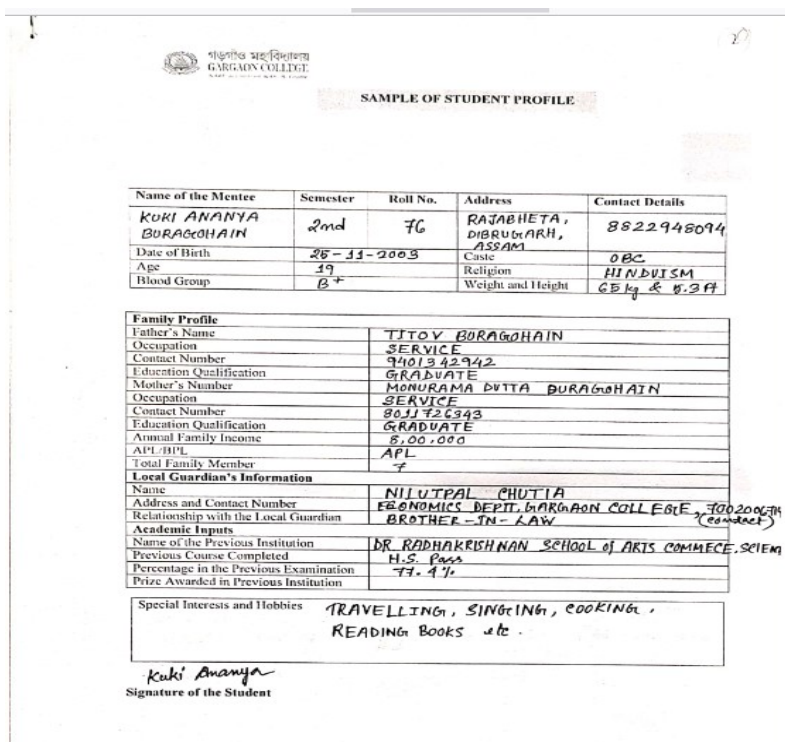 গড়গাঁও মহাবিদ্যালয়
GARGAON COLLEGE
SAMPLE OF STUDENT PROFILE
Name of the Mentee Semester Roll No. Address Contact Details
KUKI ANANYA BURAGOHAIN 2nd 76 RAJABHETA, DIBRUGARH, ASSAM 8822948094
Date of Birth 25-11-2003 Caste OBC
Age 19 Religion HINDUISM
Blood Group B+ Weight and Height 65 kg & 5.3 ft
Family Profile
Father's Name TITOV BORAGOHAIN
Occupation SERVICE
Contact Number 9401342942
Education Qualification GRADUATE
Mother's Number MONURAMA DUTTA BURAGOHAIN
Occupation SERVICE
Contact Number 8011726343
Education Qualification GRADUATE
Annual Family Income 8,00,000
APL/BPL APL
Total Family Member 7
Local Guardian's Information
Name NILUTPAL CHUTIA
Address and Contact Number ECONOMICS DEPTT. GARGAON COLLEGE, (contact)
Relationship with the Local Guardian BROTHER-IN-LAW
Academic Inputs
Name of the Previous Institution DR RADHAKRISHNAN SCHOOL of ARTS COMMECE. SCIEN
Previous Course Completed H.S. Pass
Percentage in the Previous Examination 77.4%
Prize Awarded in Previous Institution
Special Interests and Hobbies TRAVELLING, SINGING, COOKING,
READING BOOKS etc.
Kuki Ananya
Signature of the Student